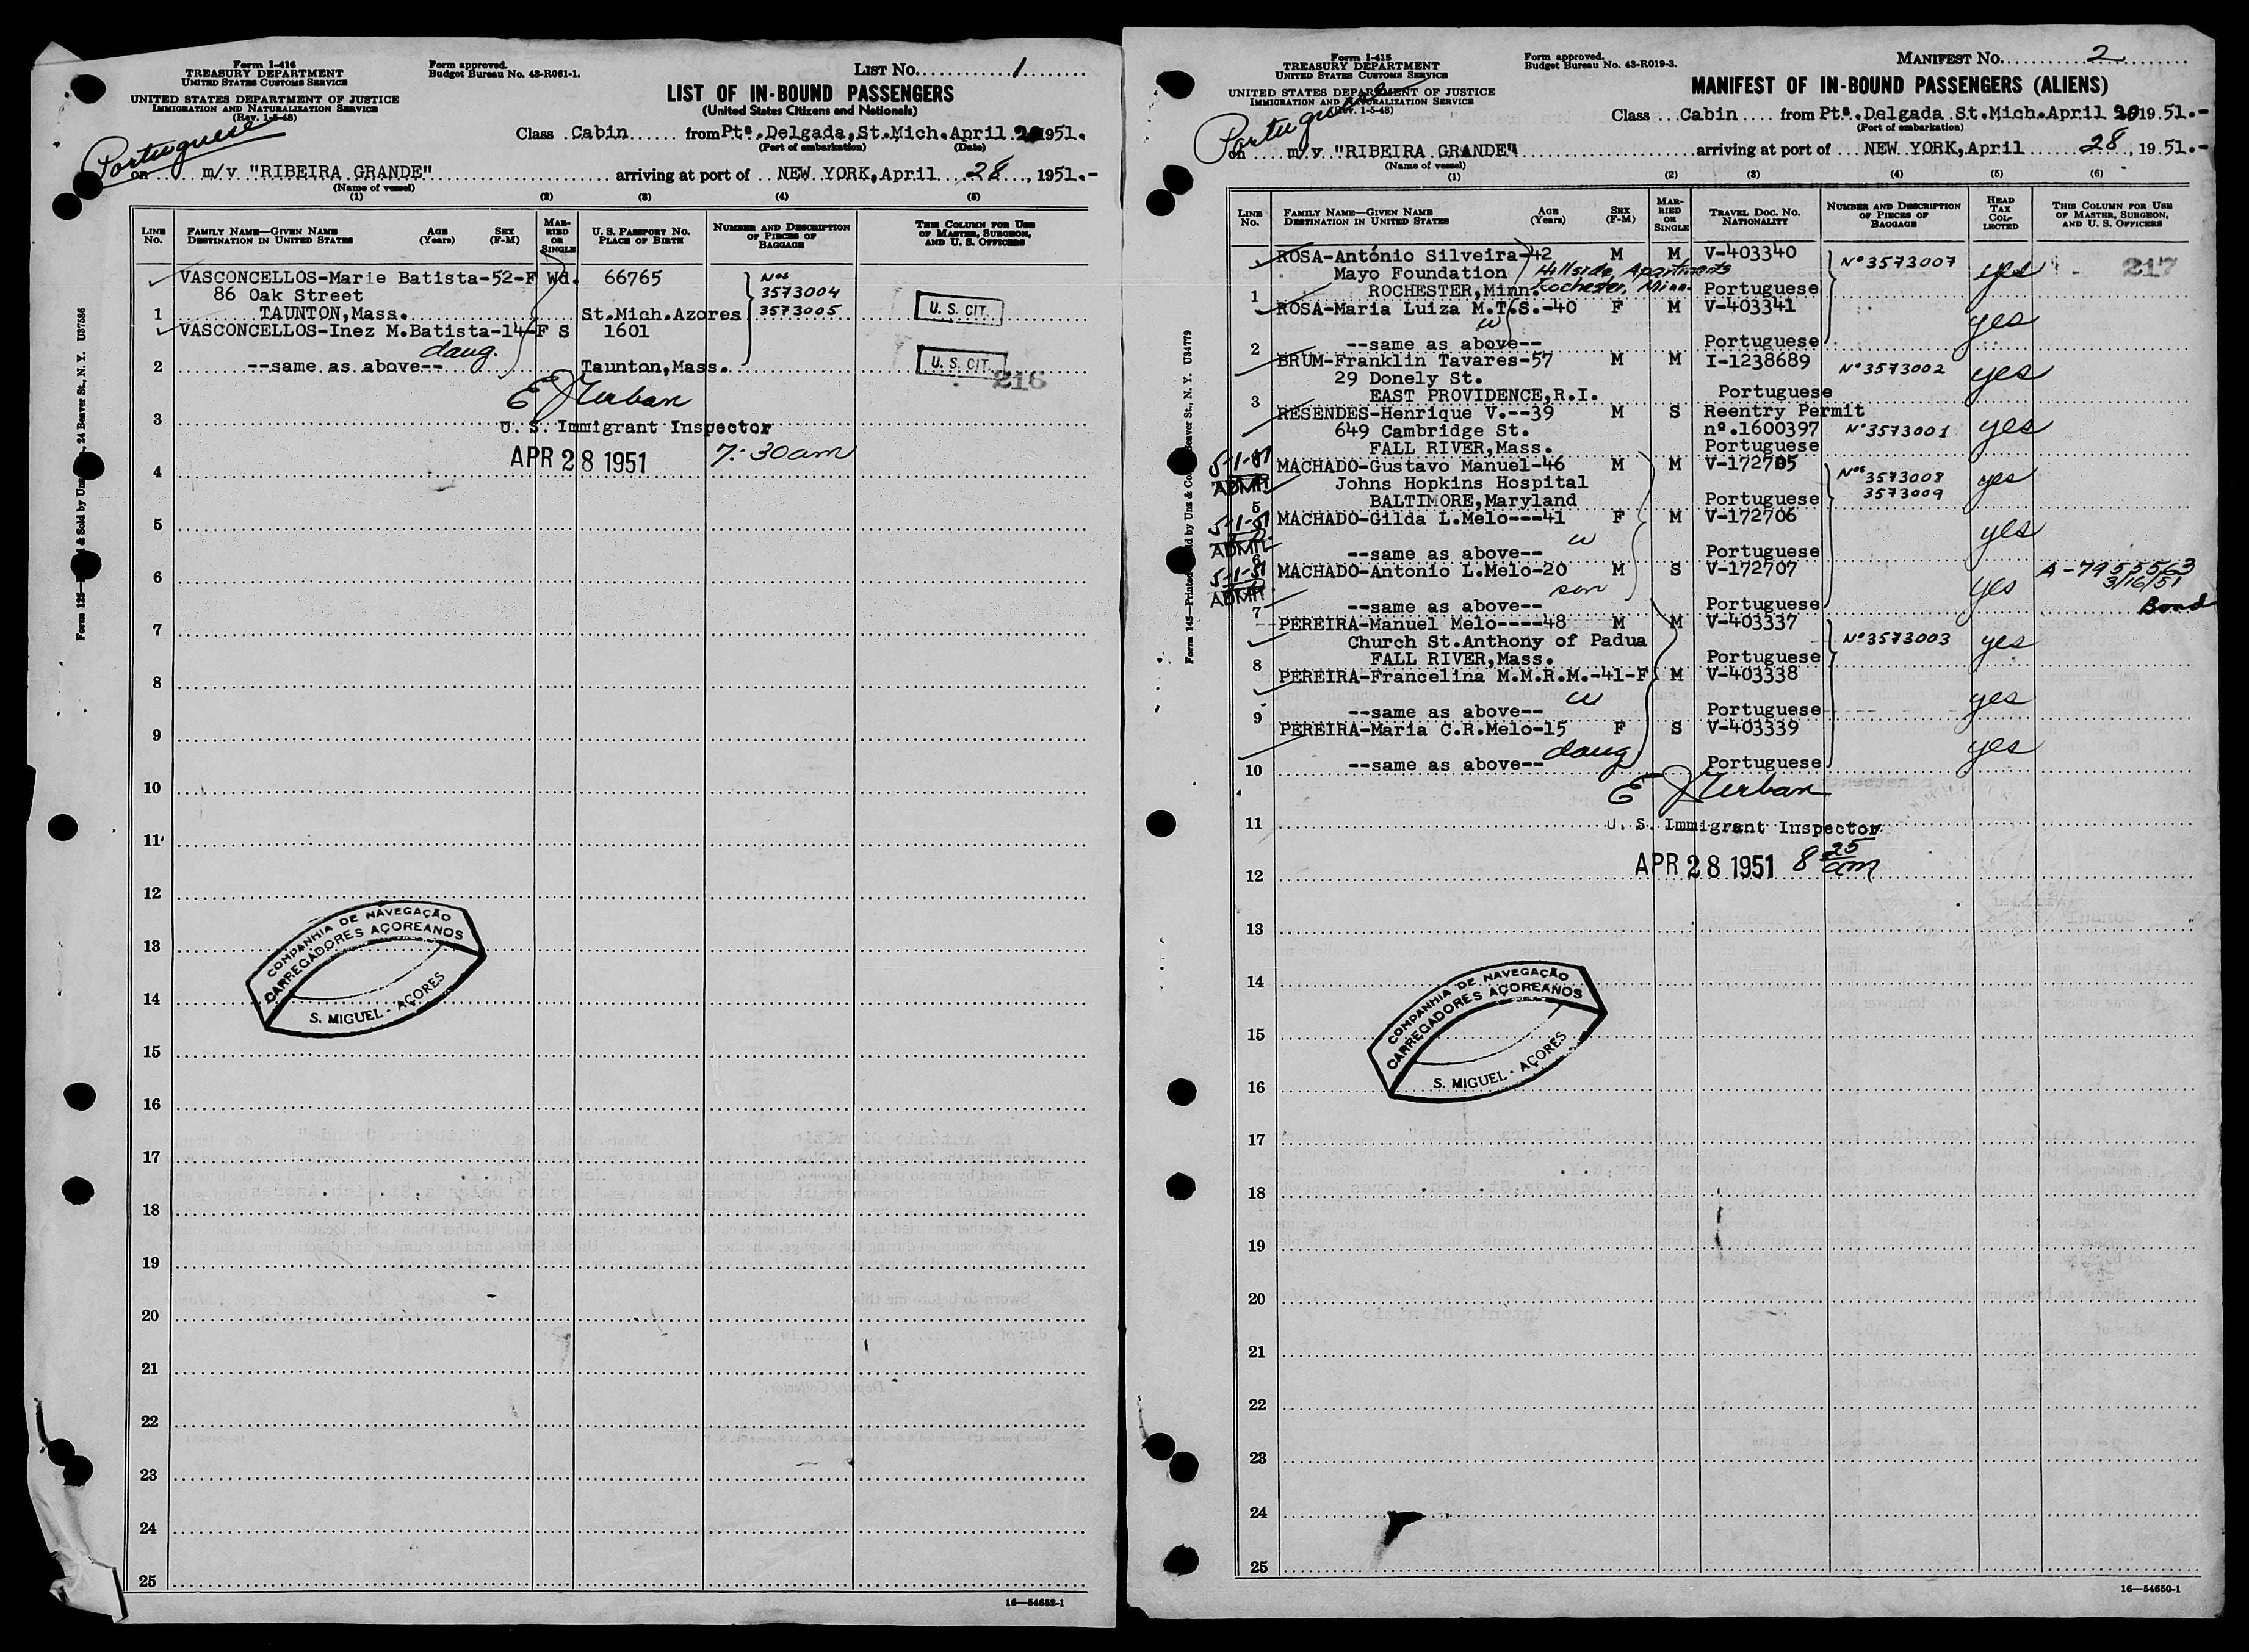 Form I-416
TREASURY DEPARTMENT
UNITED STATES CUSTOMS SERVICE
UNITED STATES DEPARTMENT OF JUSTICE
IMMIGRATION AND NATURALIZATION SERVICE
(Rev. 1-5-48)
Form approved.
Budget Bureau No. 43-R061-1.
LIST NO. 1
LIST OF IN-BOUND PASSENGERS
(United States Citizens and Nationals)
Portuguese
Class Cabin from Ptª. Delgada, St.Mich. April 1951.
(Port of embarkation) (Date)
on m/v "RIBEIRA GRANDE" arriving at port of NEW YORK, April 28, 1951.-
(Name of vessel)
(1) (2) (3) (4) (5)
LINE No.
FAMILY NAME—GIVEN NAME
DESTINATION IN UNITED STATES
AGE (Years)
SEX (F-M)
MARRIED OR SINGLE
U. S. PASSPORT NO.
PLACE OF BIRTH
NUMBER AND DESCRIPTION OF PIECES OF BAGGAGE
THIS COLUMN FOR USE OF MASTER, SURGEON, AND U. S. OFFICERS
VASCONCELLOS-Marie Batista-52-F Wd. 66765 Nos
86 Oak Street 3573004
1 TAUNTON,Mass. St.Mich.Azores 3573005 U. S. CIT.
VASCONCELLOS-Inez M.Batista-14-F S 1601
daug.
2 --same as above-- Taunton,Mass. U. S. CIT. 216
E Kerban
3 U. S. Immigrant Inspector
4 APR 28 1951 7:30am
5
6
7
8
9
10
11
12
13
14
15
16
17
18
19
20
21
22
23
24
25
COMPANHIA DE NAVEGAÇÃO
CARREGADORES AÇOREANOS
S. MIGUEL - AÇORES
16—54652-1
24 Beaver St., N. Y. U37586
Form I-415
TREASURY DEPARTMENT
UNITED STATES CUSTOMS SERVICE
UNITED STATES DEPARTMENT OF JUSTICE
IMMIGRATION AND NATURALIZATION SERVICE
(Rev. 1-5-48)
Form approved.
Budget Bureau No. 43-R019-3.
MANIFEST NO. 2
MANIFEST OF IN-BOUND PASSENGERS (ALIENS)
Portuguese
Class Cabin from Ptª. Delgada St.Mich. April 1951.-
(Port of embarkation)
on m/v "RIBEIRA GRANDE" arriving at port of NEW YORK, April 28, 1951.-
(Name of vessel)
(1) (2) (3) (4) (5) (6)
LINE No.
FAMILY NAME—GIVEN NAME
DESTINATION IN UNITED STATES
AGE (Years)
SEX (F-M)
MARRIED OR SINGLE
TRAVEL DOC. NO.
NATIONALITY
NUMBER AND DESCRIPTION OF PIECES OF BAGGAGE
HEAD TAX COLLECTED
THIS COLUMN FOR USE OF MASTER, SURGEON, AND U. S. OFFICERS
ROSA-António Silveira-42 M M V-403340 Nº3573007 yes 217
Mayo Foundation Hillside Apartments
1 ROCHESTER,Minn. Rochester, Minn. Portuguese
ROSA-Maria Luiza M.T.S.-40 F M V-403341 yes
w
2 --same as above-- Portuguese
BRUM-Franklin Tavares-57 M M I-1238689 Nº3573002 yes
29 Donely St.
3 EAST PROVIDENCE,R.I. Portuguese
RESENDES-Henrique V.--39 M S Reentry Permit
649 Cambridge St. nº.1600397 Nº3573001 yes
FALL RIVER,Mass. Portuguese
5-1-51 ADMIT MACHADO-Gustavo Manuel-46 M M V-172705 Nos 3573008 yes
Johns Hopkins Hospital 3573009
5 BALTIMORE,Maryland Portuguese
5-1-51 ADMIT MACHADO-Gilda L.Melo---41 F M V-172706 yes
w
6 --same as above-- Portuguese
5-1-51 ADMIT MACHADO-Antonio L.Melo-20 M S V-172707 yes A-7955563
son 3/16/51
7 --same as above-- Portuguese Bond
PEREIRA-Manuel Melo----48 M M V-403337 Nº3573003 yes
Church St.Anthony of Padua
8 FALL RIVER,Mass. Portuguese
PEREIRA-Francelina M.M.R.M.-41-F M V-403338 yes
w
9 --same as above-- Portuguese
PEREIRA-Maria C.R.Melo-15 F S V-403339 yes
daug
10 --same as above-- Portuguese
E Kerban
11 U. S. Immigrant Inspector
12 APR 28 1951 8 25 am
13
14
15
16
17
18
19
20
21
22
23
24
25
COMPANHIA DE NAVEGAÇÃO
CARREGADORES AÇOREANOS
S. MIGUEL - AÇORES
16—54650-1